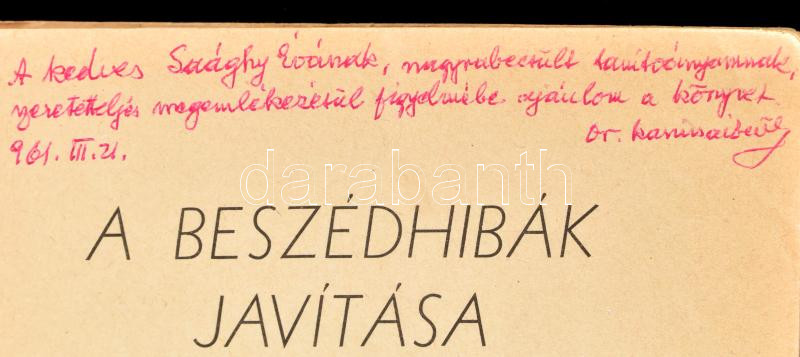 A kedves Saághy Évának, nagyrabecsült tanítványomnak,
szeretetteljes megemlékezésül figyelmébe ajánlom a könyvet
Dr. Kanizsai Dezső
961. III. 21.
darabanth
A BESZÉDHIBÁK
JAVÍTÁSA